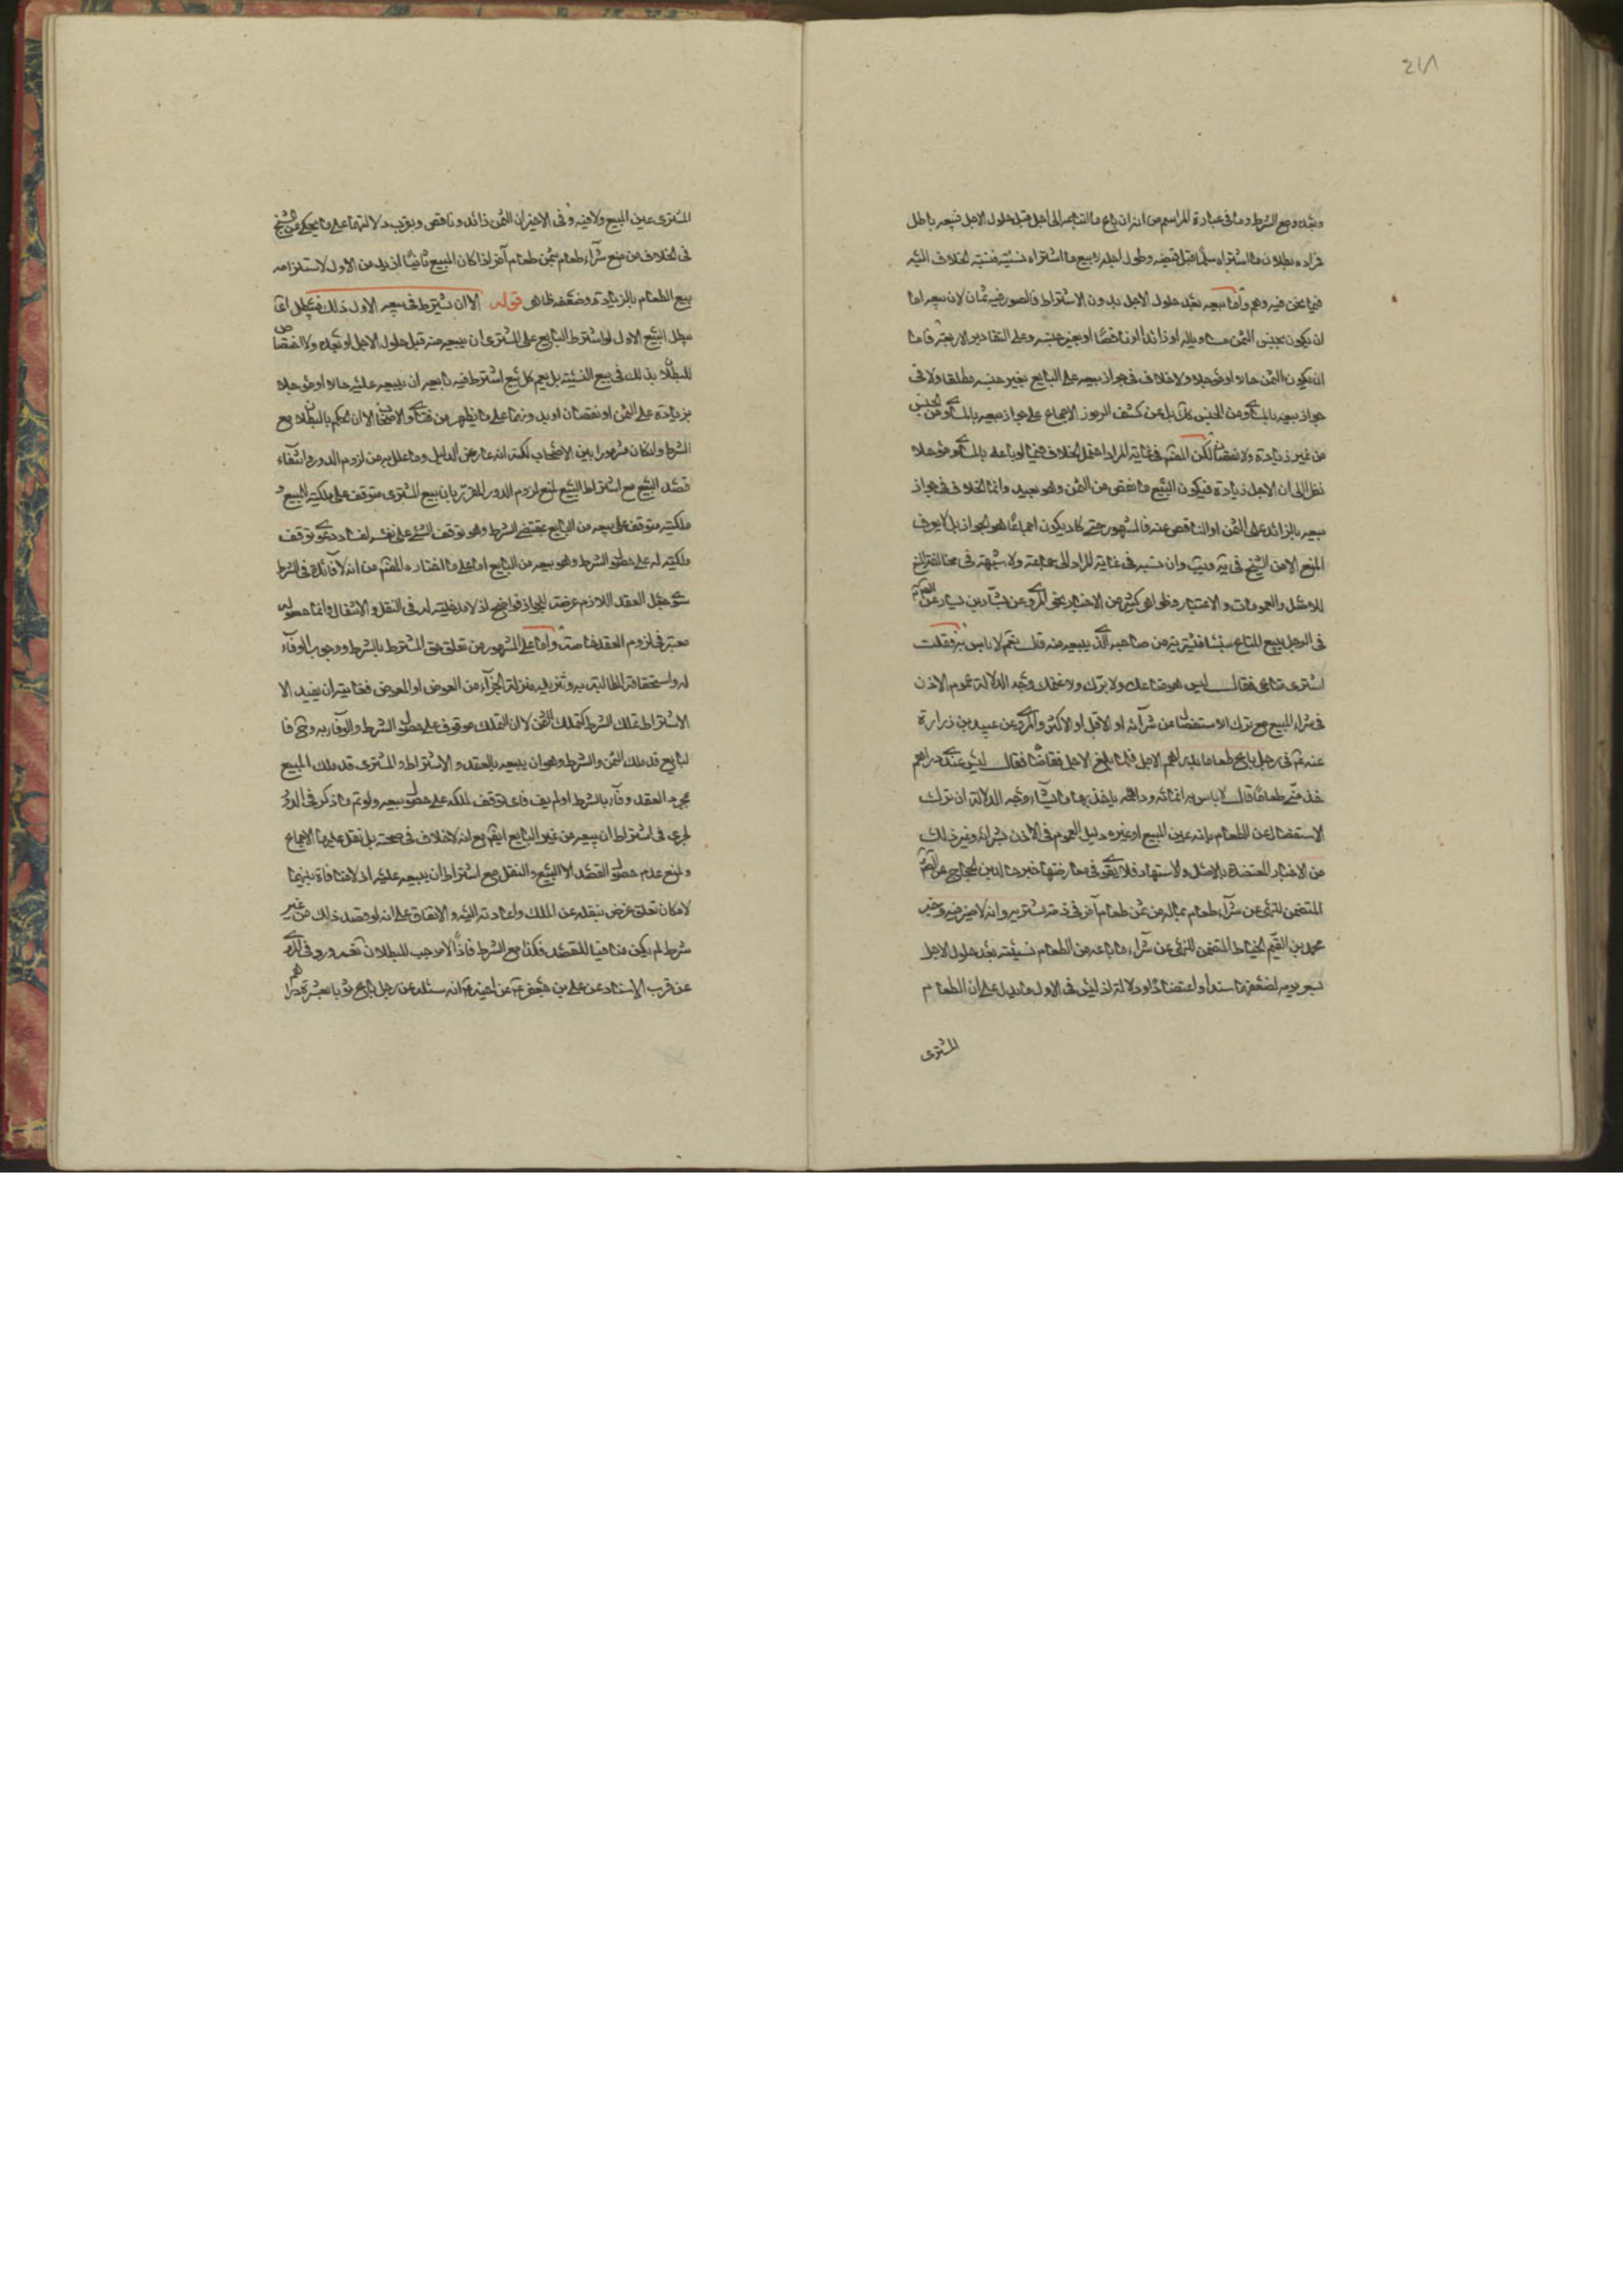 21٨
وبعده ومع الشرط وما فى عبارة المراسم من انه ان باع ما ابتاعه الى اجل قبل حلول الاجل فبيعه باطل
مراده بطلان ما اشتراه سلما قبل قبضه وحلول اجله لا بيع ما اشتراه نسيئة فنسبة الخلاف اليه
فيما نحن فيه وهم واما بيعه بعد حلول الاجل بدون الاشتراط فالصور فيه ثمان لان بيعه اما
ان يكون بجنس الثمن مساويا له او زائدا او ناقصا او بغير جنسه وعلى التقادير الاربعة فاما
ان يكون الثمن حالا او مؤجلا ولا خلاف فى جواز بيعه على البايع بغير جنسه مطلقا ولا فى
جواز بيعه بالمساوى من الجنس بل عن كشف الرموز الاجماع على جواز بيعه بالمساوى من الجنس
من غير زيادة ولا نقصان لكن المقم فى غاية المراد احتمل الخلاف فيما لو باعه بالمساوى مؤجلا
نظرا الى ان الاجل زيادة فيكون البيع ما نقص من الثمن وهو بعيد وانما الخلاف فى جواز
بيعه بالزائد على الثمن او الناقص عنه فالمشهور حتى كاد يكون اجماعا هو الجواز بل لا يعرف
المنع الا من الشيخ فى يه ويب وان نسبه فى غاية المراد الى جماعة ولا شبهة فى مخالفته
للاصل والعمومات والاعتبار وظواهر كثير من الاخبار نحو المروى عن بشار بن يسار عن
فى الرجل يبيع المتاع بنسا فيشتريه من صاحبه الذى يبيعه منه قال نعم لا باس به فقلت
اشترى متاعى فقال ليس هو متاعك ولا بقرك ولا غنمك وجه الدلالة عموم الاذن
فى شراء المبيع مع ترك الاستفصال من شرائه او الاقل او الاكثر والمروى عن عبيد بن زرارة
عنه ع فى رجل باع طعاما بدراهم الاجل فلما بلغ الاجل تقاضاه فقال ليس عندى دراهم
خذ منى طعاما قال لا باس به انما له دراهمه ياخذ بها ما شاء وجه الدلالة ان ترك
الاستفصال عن الطعام بانه عين المبيع او غيره دليل العموم فى الاذن بشرائه وغير ذلك
من الاخبار المعتضدة بالاصل والاشتهار فلا يقوى فى معارضتها خبر خالد بن الحجاج عن
المتضمن للنهى عن شراء طعام بماله من ثمن طعام آخر فى ذمة مشتريه وانه لا خير فيه وخبر
محمد بن القسم الحناط المتضمن للنهى عن شراء ما باعه من الطعام نسيئة بعد حلول الاجل
بسعر يومه لضعفهما سندا واعتضادا ودلالة اذ ليس فى الاول ما يدل على ان الطعام
المشترى
المشترى عين المبيع ولا فيه وفى الاخير ان الثمن زائد وناقص وبقرب دلالتهما على ما يحكى عن الشيخ
فى الخلاف من منع شراء طعام بثمن طعام آخر اذا كان المبيع ثانيا ازيد من الاول لاستلزامه
بيع الطعام بالزيادة وضعفه ظاهر قوله الا ان يشترط فى بيعه الاول ذلك فيبطل اى
يبطل البيع الاول لو اشترط البايع على المشترى ان يبيعه منه قبل حلول الاجل او بعده ولا اختصاص
للبطلان بذلك فى بيع النسيئة بل يعم كل بيع اشترط فيه بايعه ان يبيعه عليه حالا او مؤجلا
بزيادة على الثمن او نقصان او بدونهما على ما يظهر من فتاوى الاصحاب الا ان الحكم بالبطلان مع
الشرط وان كان مشهورا بين الاصحاب لكنه عار عن الدليل وما علل به من لزوم الدور وانتفاء
قصد البيع مع اشتراط البيع لمنع لزوم الدور المقرر بان بيع المشترى متوقف على ملكية المبيع و
ملكيته متوقف على بيعه من البايع بمقتضى الشرط وهو توقف الشىء على نفسه لفساد دعوى توقف
ملكيته له على حصول الشرط وهو بيعه من البايع اما على ما اختاره المقم من انه لا فائدة فى الشرط
سوى جعل العقد اللازم عرضة للجواز فواضح اذ لا مدخلية له فى النقل والانتقال وانما حصوله
معتبر فى لزوم العقد خاصة واما على المشهور من تعلق حق المشترط بالشرط ووجوب الوفاء
له واستحقاقه المطالبة به وتنزيله منزلة الجزء من العوض او المعوض فغايته ان يفيد الا
الاشتراط تملك الشرط كتملك الثمن لا ان التملك موقوف على حصول الشرط والوفاء به وح فا
لبايع قد ملك الثمن والشرط وهو ان يبيعه بالعقد والاشتراط والمشترى قد ملك المبيع
بمجرد العقد وفاء بالشرط او لم يف فاين توقف الملكه على حصول بيعه ولو تم ما ذكر فى الدور
لجرى فى اشتراط ان يبيعه من غير البايع ايضا مع انه لا خلاف فى صحته بل نقل عليها الاجماع
ولمنع عدم حصول القصد الى البيع والنقل مع اشتراط ان يبيعه عليه اذ لا منافاة بينهما
لامكان تعلق غرض بنقله عن الملك واعادته اليه والاتفاق على انه لو قصد ذلك من غير
شرط لم يكن منافيا للقصد فكذا مع الشرط فاذا لا موجب للبطلان نعم ورد فى المروى
عن قرب الاسناد عن على بن جعفر ع عن اخيه ع انه سئله عن رجل باع ثوبا بعشرة دراهم